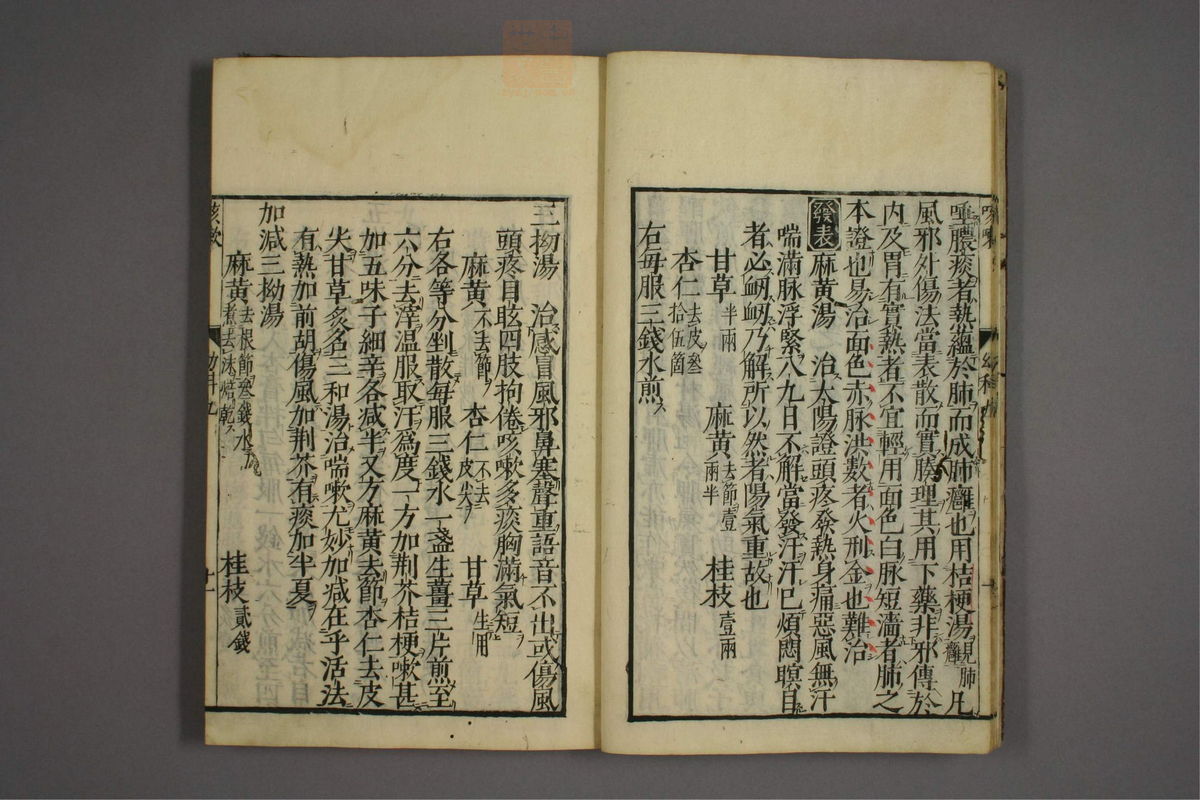 唾膿痰者熱蘊於肺而成肺癰也用桔梗湯見肺癰凡
風邪外傷法當表散而實腠理其用下藥非邪傳於
内及胃有實熱者不宜輕用面色白脉短濇者肺之
本證也易治面色赤脉洪數者火刑金也難治
發表 麻黄湯 治太陽證頭疼發熱身痛惡風無汗
喘滿脉浮緊八九日不解當發汗汗已煩悶瞑目
者必衂衂乃解所以然者陽氣重故也
甘草半兩 麻黄去節壹兩半 桂枝壹兩
杏仁去皮叄拾伍箇
右每服三錢水煎
幼科
三拗湯 治感冒風邪鼻塞聲重語音不出或傷風
頭疼目眩四肢拘倦咳嗽多痰胸滿氣短
麻黄不去節 杏仁不去皮尖 甘草生用
右各等分剉散每服三錢水一盞生薑三片煎至
六分去滓温服取汗爲度一方加荆芥桔梗嗽甚
加五味子細辛各减半又方麻黄去節杏仁去皮
尖甘草炙名三和湯治喘嗽尤妙加减在乎活法
有熱加前胡傷風加荆芥有痰加半夏
加減三拗湯
麻黄去根節叄錢水煮去沫焙乾 桂枝貳錢
咳嗽 幼科五 十一